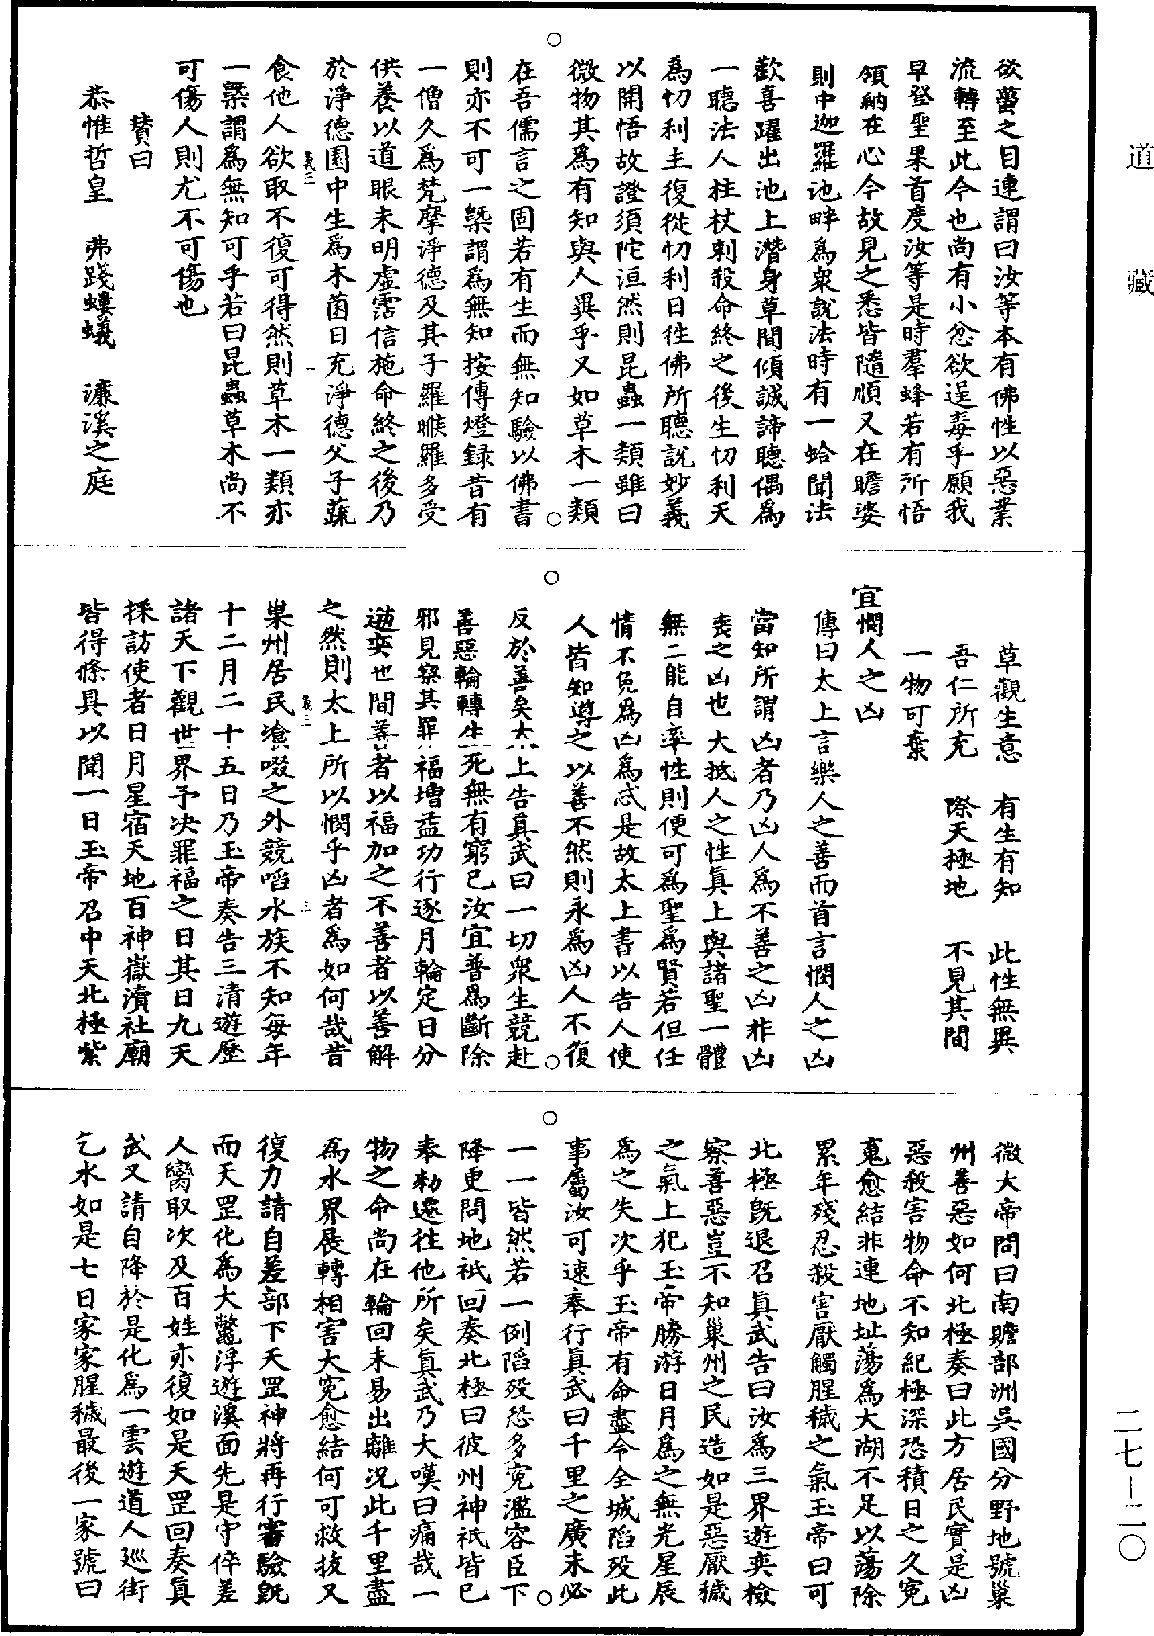 道藏
欲螫之目連謂曰汝等本有佛性以惡業
流轉至此今也尚有小忿欲逞毒乎願我
早登聖果首度汝等是時羣蜂若有所悟
領納在心今故見之悉皆隨順又在瞻婆
則中迦羅池畔為衆說法時有一蛤聞法
歡喜躍出池上潛身草間傾誠諦聽偶為
一聽法人柱杖刺殺命終之後生忉利天
為忉利主復從忉利日徃佛所聽說妙義
以開悟故證須陀洹然則昆蟲一類雖曰
微物其為有知與人異乎又如草木一類
在吾儒言之固若有生而無知驗以佛書
則亦不可一槩謂為無知按傳燈録昔有
一僧久為梵摩淨德及其子羅睺羅多受
供養以道眼未明虛霑信施命終之後乃
於淨德園中生為木菌日充淨德父子蔬
食他人欲取不復可得然則草木一類亦
一槩謂為無知可乎若曰昆蟲草木尚不
可傷人則尤不可傷也
賛曰
恭惟哲皇　弗踐螻蟻　濂溪之庭
草觀生意　有生有知　此性無異
吾仁所充　際天極地　不見其間
一物可棄
宜憫人之凶
傳曰太上言樂人之善而首言憫人之凶
當知所謂凶者乃凶人為不善之凶非凶
喪之凶也大抵人之性真上與諸聖一體
無二能自率性則便可為聖為賢若但任
情不免為凶為忒是故太上書以告人使
人皆知導之以善不然則永為凶人不復
反於善矣太上告真武曰一切衆生競赴
善惡輪轉生死無有窮已汝宜普為斷除
邪見察其罪福增益功行逐月輪定日分
遊奕世間善者以福加之不善者以善解
之然則太上所以憫乎凶者為如何哉昔
巢州居民飡啜之外競啗水族不知每年
十二月二十五日乃玉帝奏告三清遊歷
諸天下觀世界予決罪福之日其日九天
採訪使者日月星宿天地百神嶽瀆社廟
皆得條具以聞一日玉帝召中天北極紫
微大帝問曰南贍部洲吳國分野地號巢
州善惡如何北極奏曰此方居民實是凶
惡殺害物命不知紀極深恐積日之久寃
䰟愈結非連地址蕩為大湖不足以蕩除
累年殘忍殺害厭觸腥穢之氣玉帝曰可
北極既退召真武告曰汝為三界遊奕檢
察善惡豈不知巢州之民造如是惡厭穢
之氣上犯玉帝勝游日月為之無光星辰
為之失次乎玉帝有命盡令全城陷殁此
事屬汝可速奉行真武曰千里之廣未必
一一皆然若一例陷殁恐多寃濫容臣下
降更問地祇回奏北極曰彼州神祇皆已
奉勑遷往他所矣真武乃大嘆曰痛哉一
物之命尚在輪回未易出離況此千里盡
為水界展轉相害大寃愈結何可救拔又
復力請自差部下天罡神將再行審驗既
而天罡化為大鼈浮遊溪面先是守倅差
人臠取次及百姓亦復如是天罡回奏真
武又請自降於是化為一雲遊道人巡街
乞水如是七日家家腥穢最後一家號曰
二七－二〇